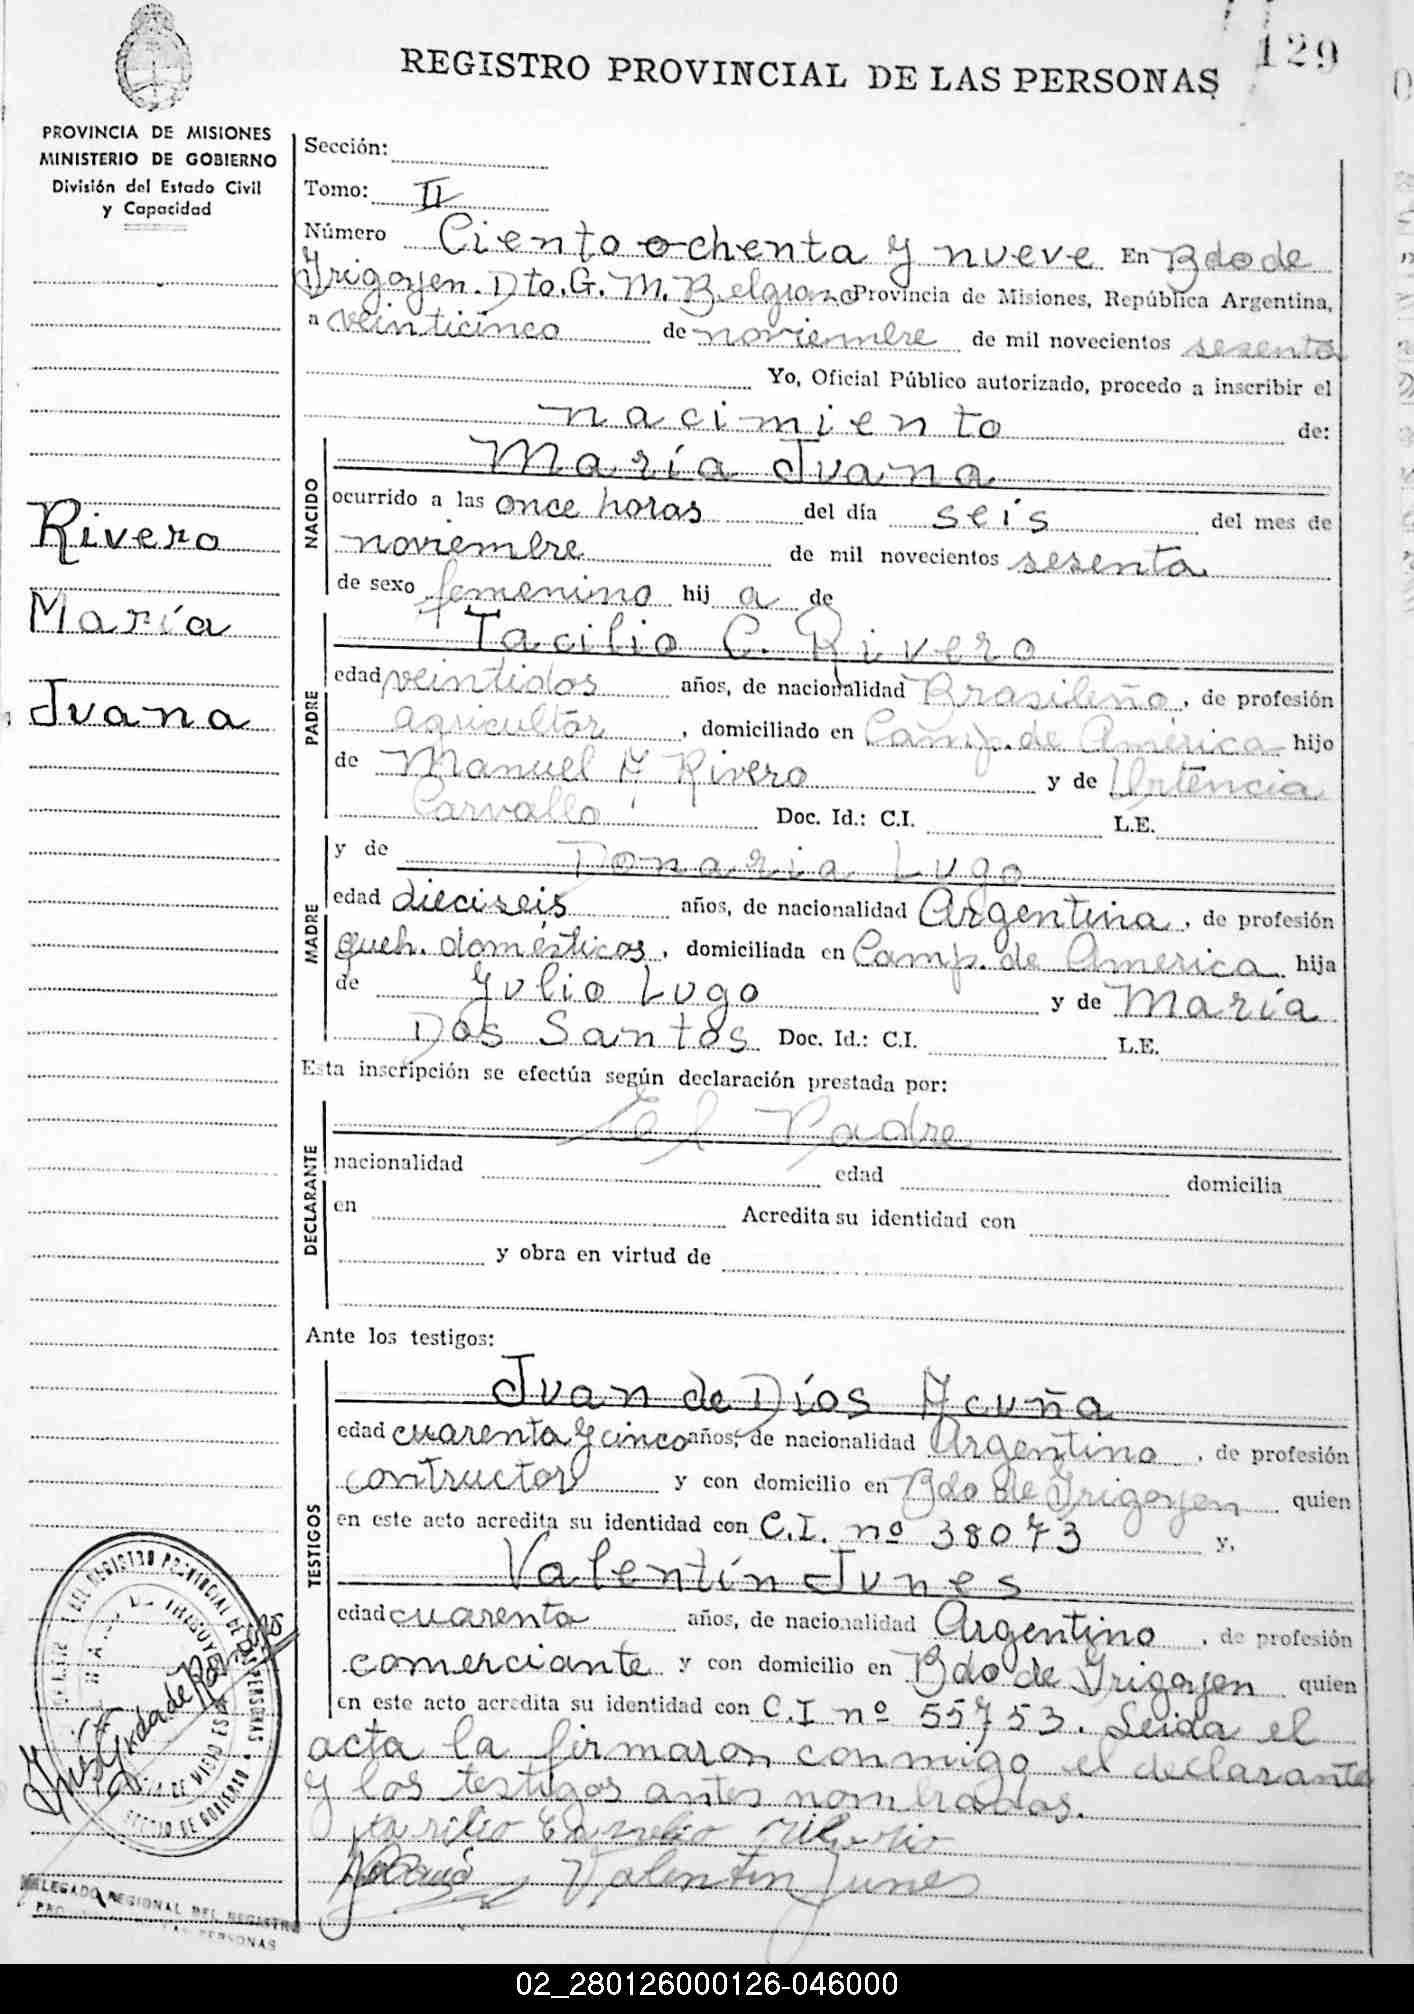 129
REGISTRO PROVINCIAL DE LAS PERSONAS
PROVINCIA DE MISIONES
MINISTERIO DE GOBIERNO
División del Estado Civil
y Capacidad
Rivero
María
Juana
Sección:
Tomo: II
Número Ciento ochenta y nueve En Bdo de
Irigoyen. Dto. G. M. Belgrano Provincia de Misiones, República Argentina,
a veinticinco de noviembre de mil novecientos sesenta
Yo, Oficial Público autorizado, procedo a inscribir el
nacimiento de:
NACIDO
María Juana
ocurrido a las once horas del día seís del mes de
noviembre de mil novecientos sesenta
de sexo femenino hij a de
PADRE
Tacilio C. Rivero
edad veintidos años, de nacionalidad Brasileño, de profesión
agricultor, domiciliado en Camp. de América hijo
de Manuel A Rivero y de Urtencia
Carvallo Doc. Id.: C.I. L.E.
MADRE
y de Donaria Lugo
edad dieciseis años, de nacionalidad Argentina, de profesión
queh. domésticos, domiciliada en Camp. de America hija
de Julio Lugo y de María
Dos Santos Doc. Id.: C.I. L.E.
Esta inscripción se efectúa según declaración prestada por:
DECLARANTE
El Padre
nacionalidad edad domicilia
en Acredita su identidad con
y obra en virtud de
Ante los testigos:
TESTIGOS
Juan de Díos Acuña
edad cuarenta y cinco años, de nacionalidad Argentino, de profesión
contructor y con domicilio en Bdo de Irigoyen quien
en este acto acredita su identidad con C.I. nº 38073 y,
Valentín Junes
edad cuarenta años, de nacionalidad Argentino, de profesión
comerciante y con domicilio en Bdo de Irigoyen quien
en este acto acredita su identidad con C.I nº 55753. Leida el
acta la firmaron conmigo el declarante
y los testigos antes nombrados.
Valentin Junes
DELEGADO REGIONAL DEL REGISTRO
PERSONAS
02_280126000126-046000